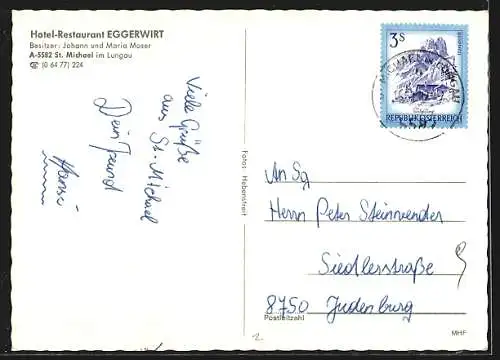 Hotel-Restaurant EGGERWIRT
Besitzer: Johann und Maria Moser
A-5582 St. Michael im Lungau
☎ (0 64 77) 224
Viele Grüße
aus St. Michael
Dein Freund
Hansi
Fotos: Hebenstreit
3 S
REPUBLIK ÖSTERREICH
MICHAEL IM LUNGAU
5582
An Sg
Herrn Peter Steinwender
Siedlerstraße 9
8750 Judenburg
Postleitzahl
2
MHF